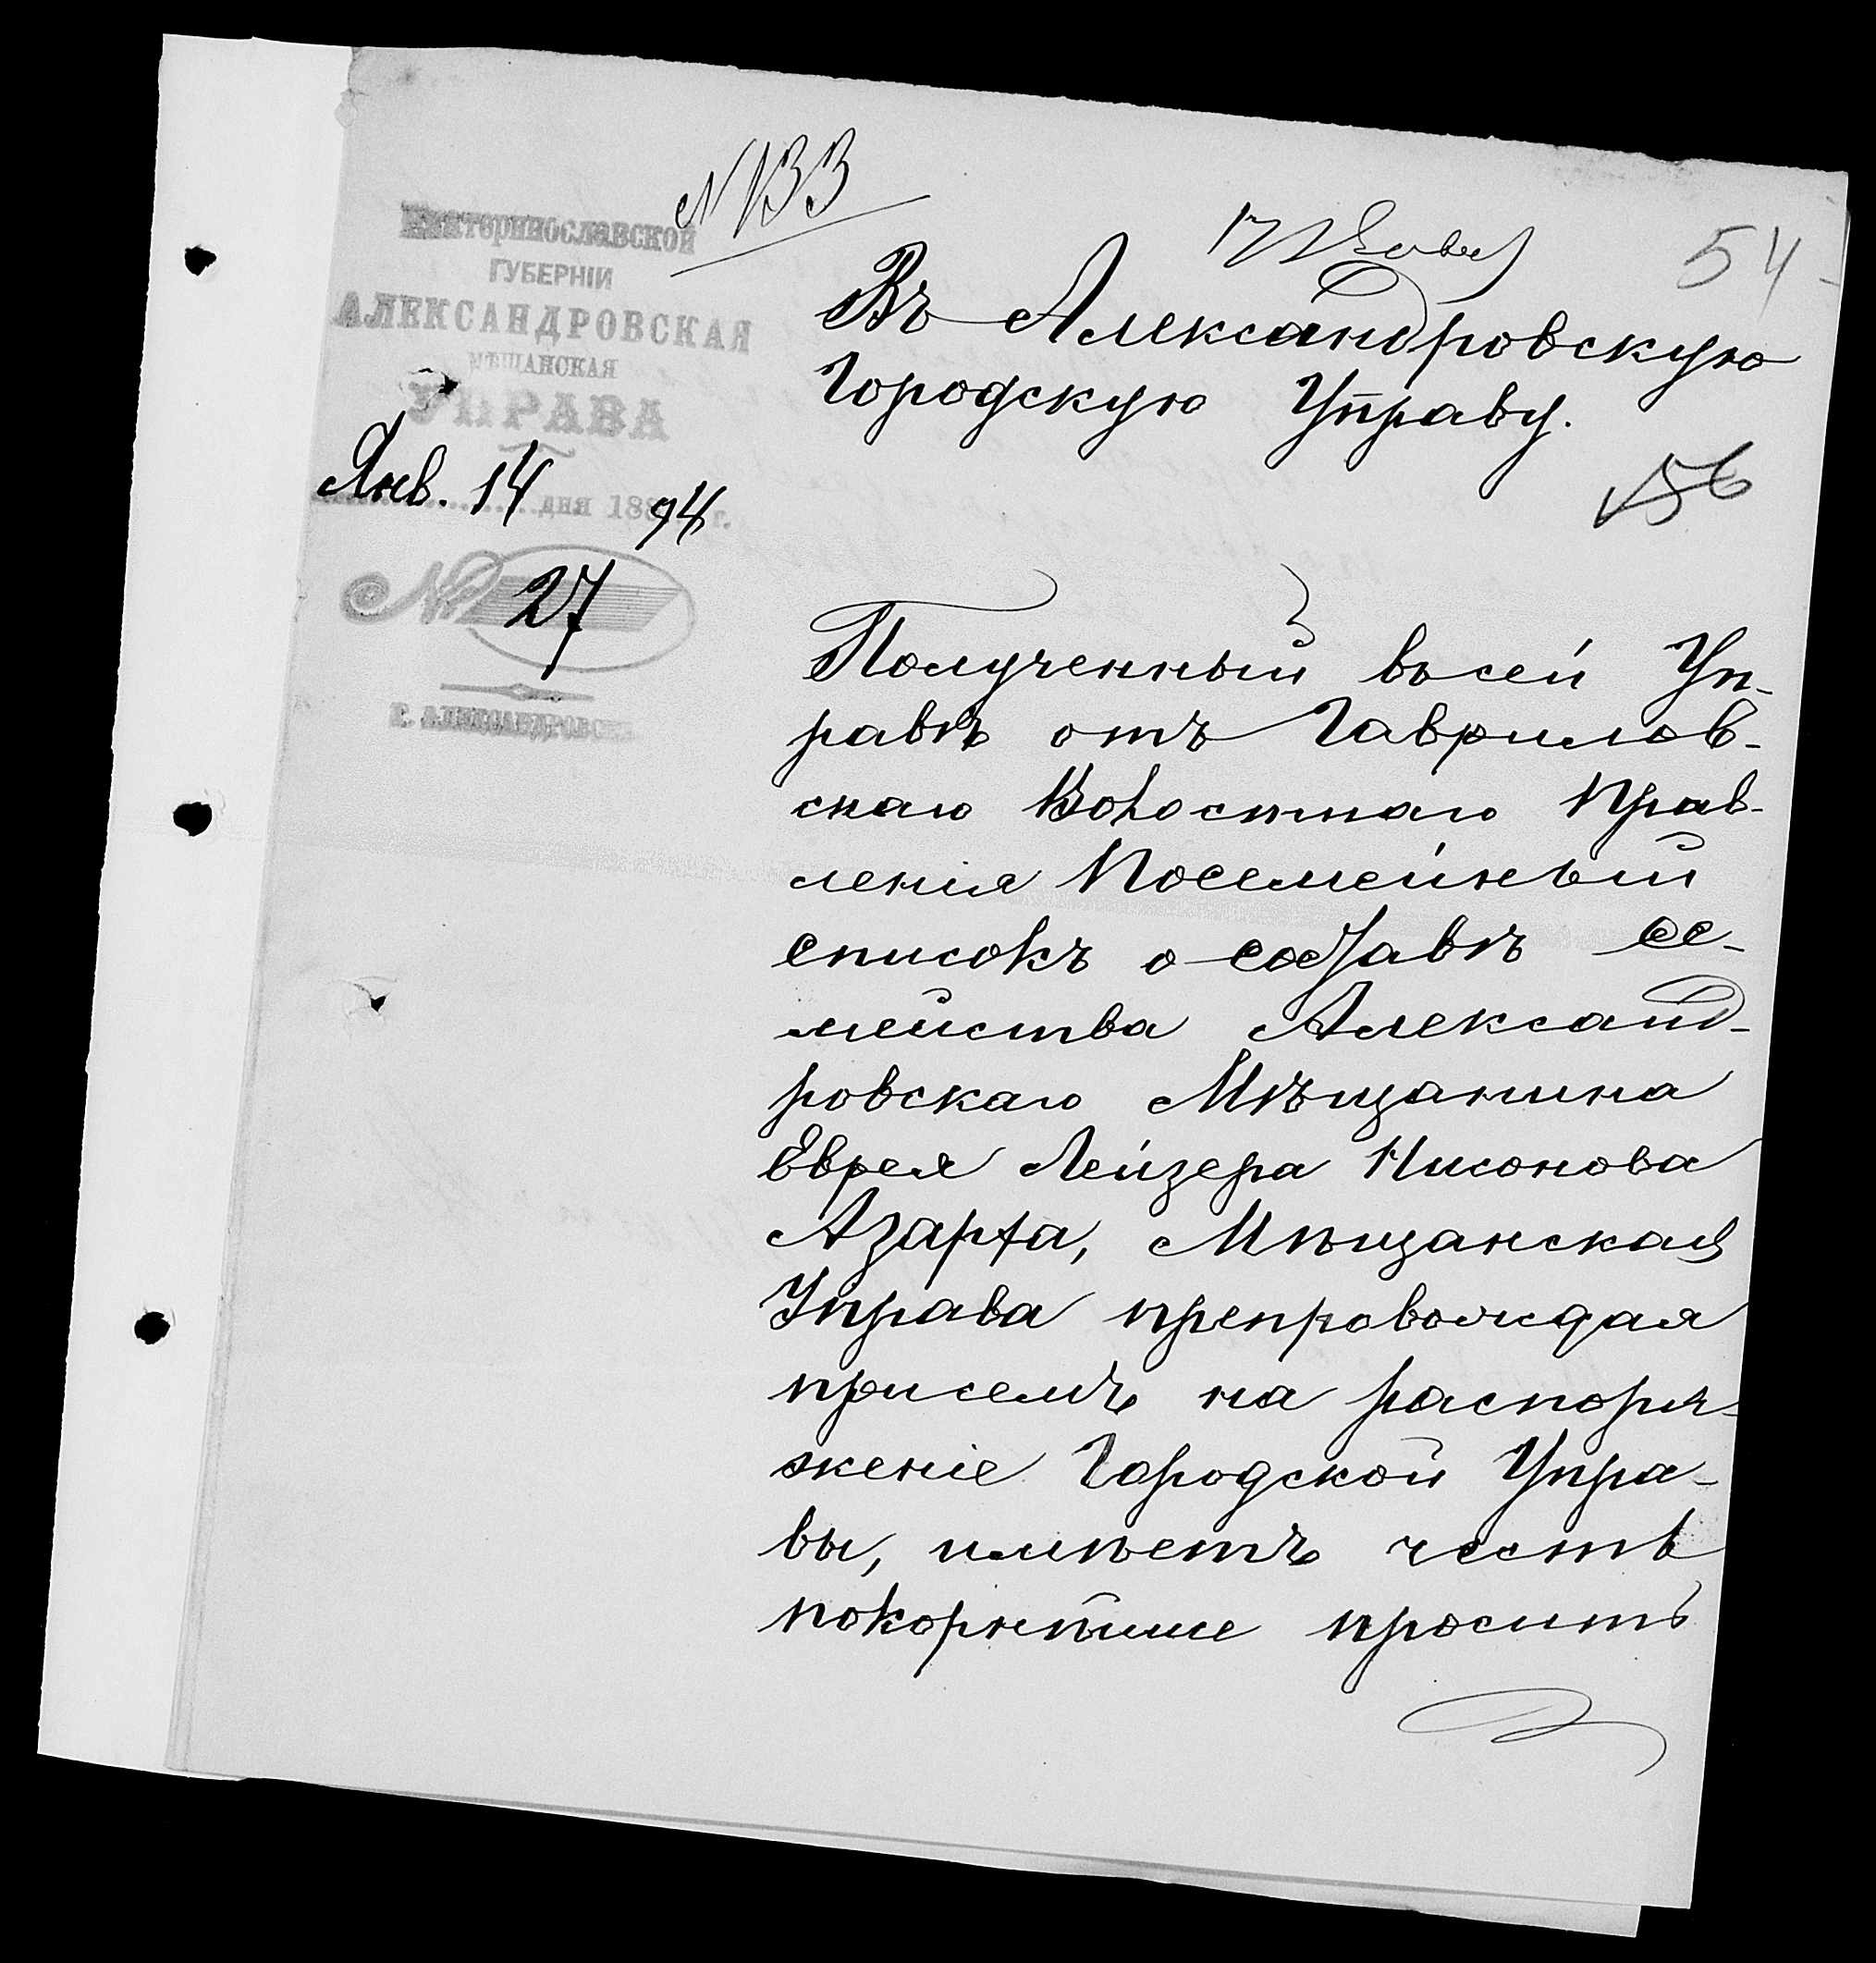 N 133
17 Янва
54
Екатеринославской
ГУБЕРНІИ
АЛЕКСАНДРОВСКАЯ
МѢЩАНСКАЯ
УПРАВА
Янв. 14 дня 1894 г.
№ 27
Г. АЛЕКСАНДРОВСКЪ
Въ Александровскую
Городскую Управу.
56
Полученный въ сей Уп-
равѣ отъ Гаврилов-
скаго Волостнаго Прав-
ленія Посемейный
списокъ о составѣ се-
мейства Александ-
ровскаго Мѣщанина
Еврея Лейзера Нисонова
Азарха, Мѣщанская
Управа препровождая
присемъ на распоря-
женіе Городской Упра-
вы, имѣетъ честь
покорнѣйше просить